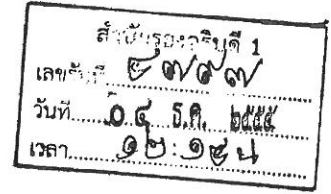 สำนักรองอธิบดี 1
เลขรับที่
วันที่ 0๔ ธ.ค. ๒๕๕๕
เวลา ๑๒:๑๔ น